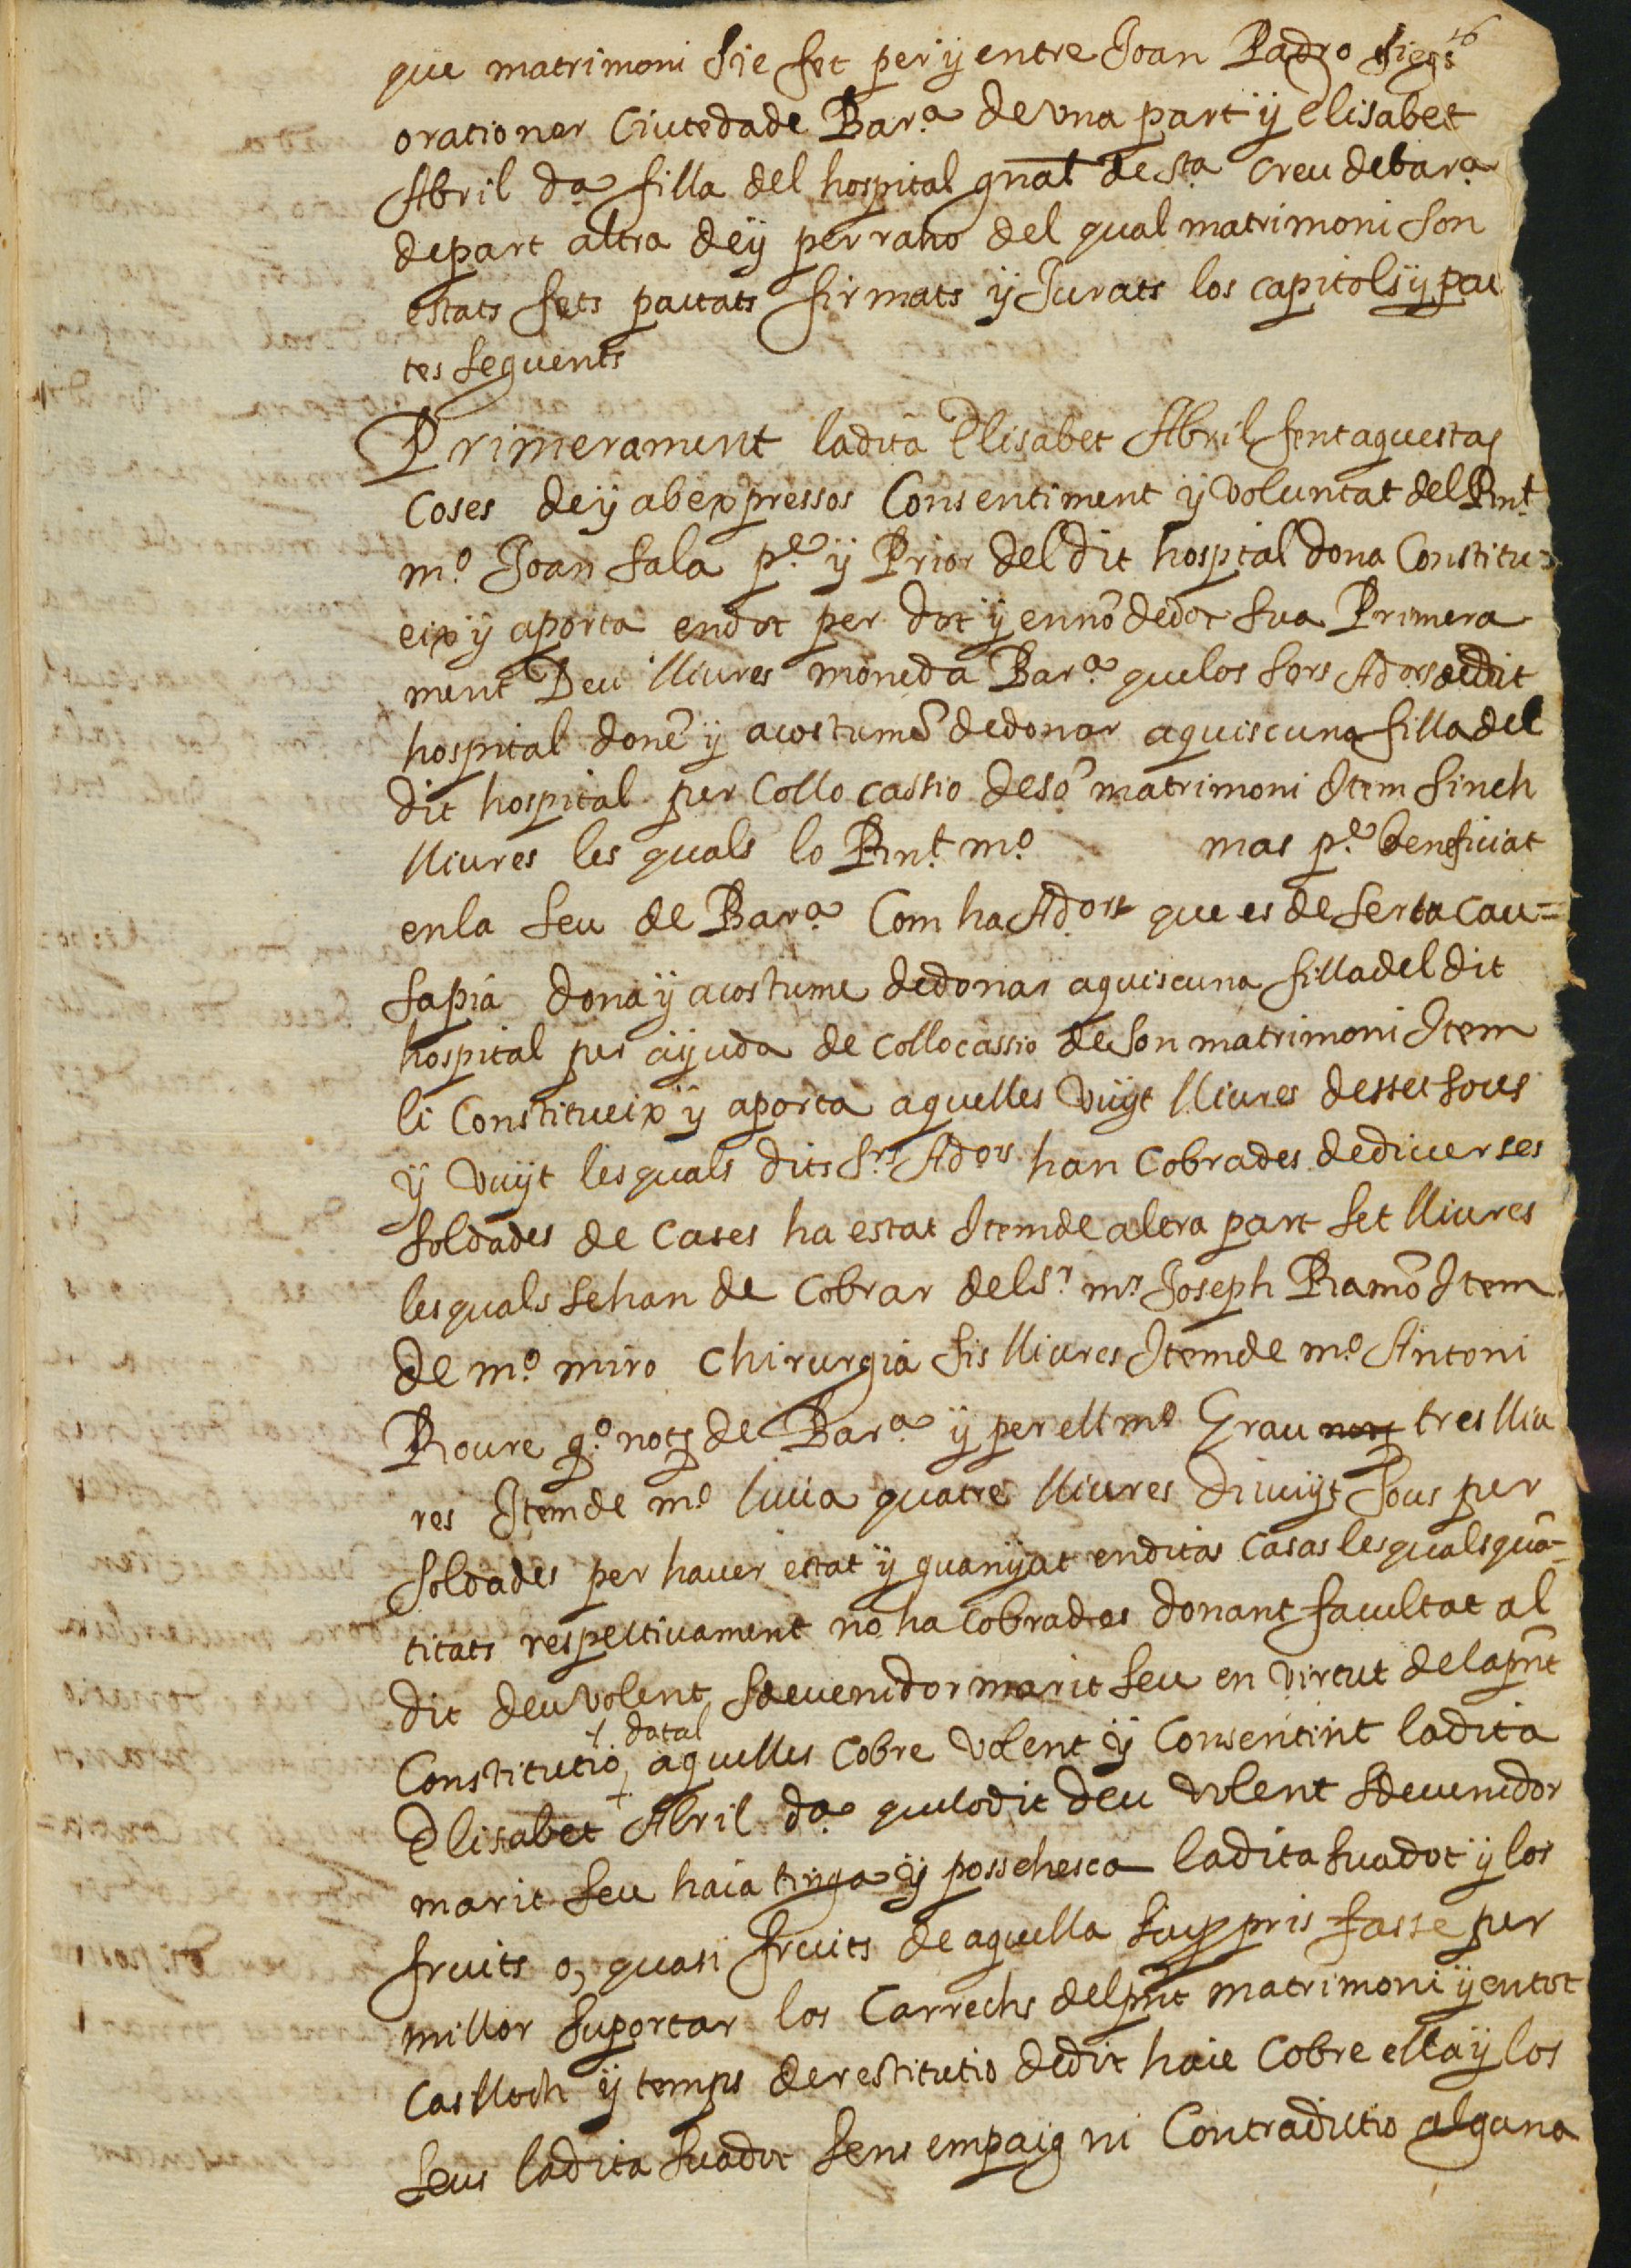 que matrimoni sie fet per ÿ entre Joan Padro siegs
orationer Ciutedade Bar.ª de vna part ÿ Elisabet
Abril d.ª filla del hospital gñal de st.ª Creu de bar.ª
de part altra deÿ per raho del qual matrimoni son
estats fets pactats firmats ÿ Jurats los capitols ÿ pac
tes seguents
Primerament la dita Elisabet Abril fent aquestas
Coses deÿ ab expressos Consentiment ÿ voluntat del Rnt.
m.º Joan Sala p.e ÿ Prior del dit hospital dona Constitu=
eix ÿ aporta en dot per dot ÿ en nõ de dot sua Primera
ment Deu lliures moneda Bar.ª que los sors Adors de dit
hospital donẽ ÿ acostumẽ de donar a quiscuna filla del
dit hospital per Collocassio de sõ matrimoni Item sinch
lliures les quals lo Rnt. m.º mas p.e beneficiat
en la Seu de Bar.ª Com ha Ador que es de serta Cau=
sa pia dona ÿ acostume de donar a quiscuna filla del dit
hospital per aÿuda de collocassio de son matrimoni Item
li Constitueix ÿ aporta aquelles vuÿt lliures desset sous
ÿ vuÿt les quals dits Srs. Adors han Cobrades de diuerses
soldades de Cases ha estat Item de altra part set lliures
les quals se han de Cobrar del Sr. mr. Joseph Ramõ Item
de m.º miro Chirurgia sis lliures Item de m.º Antoni
Roure q.º not de Bar.ª ÿ per ell m.º Grau not tres lliu
res Item de m.º liuia quatre lliures diuuÿt sous per
soldades per hauer estat ÿ guanÿat en ditas Casas les quals quã-
titats respectiuament no ha Cobrades donant facultat al
dit deu volent sdeuenidor marit seu en virtut de la pñt
+ dotal
Constitutio + aquelles Cobre volent ÿ Consentint la dita
Elisabet Abril d.ª que lo dit deu volent sdeuenidor
marit seu haia tinga ÿ possehesca la dita sua dot ÿ los
fruits o, quasi fruits de aquella sup pris fasse per
millor suportar los Carrechs del pñt matrimoni ÿ en tot
Cas lloch ÿ temps de restitutio de dit haie Cobre ella ÿ los
seus la dita sua dot sens empaig ni Contradictio alguna